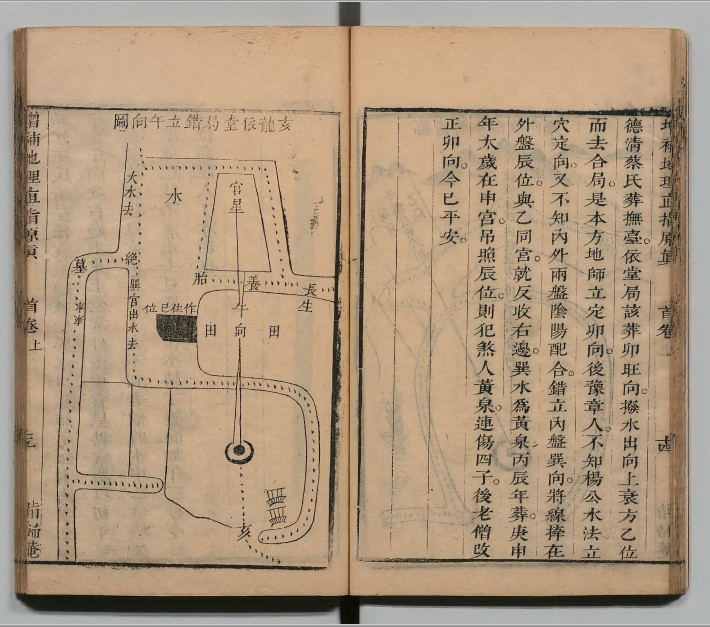 首卷
德清蔡氏葬撫臺。依堂局該葬卯旺向。撥水出向上衰方乙位
而去合局。是本方地師立定卯向。後豫章人。不知楊公水法立
穴定向。又不知內外兩盤陰陽配合。錯立內盤巽向。將線捧在
外盤辰位。與乙同宮。就反收右邊。巽水爲黃泉。丙辰年葬。庚申
年太歲在申宮。吊照辰位。則犯煞人黃泉。連傷四子。後老僧改
正卯向。今已平安。
亥龍依堂局錯立午向圖
長生
官星
養
水
胎
午向
田
田
作佳巳位
大水去
絕
巽官出水去
墓
亥
增補地理直指原真
首卷上